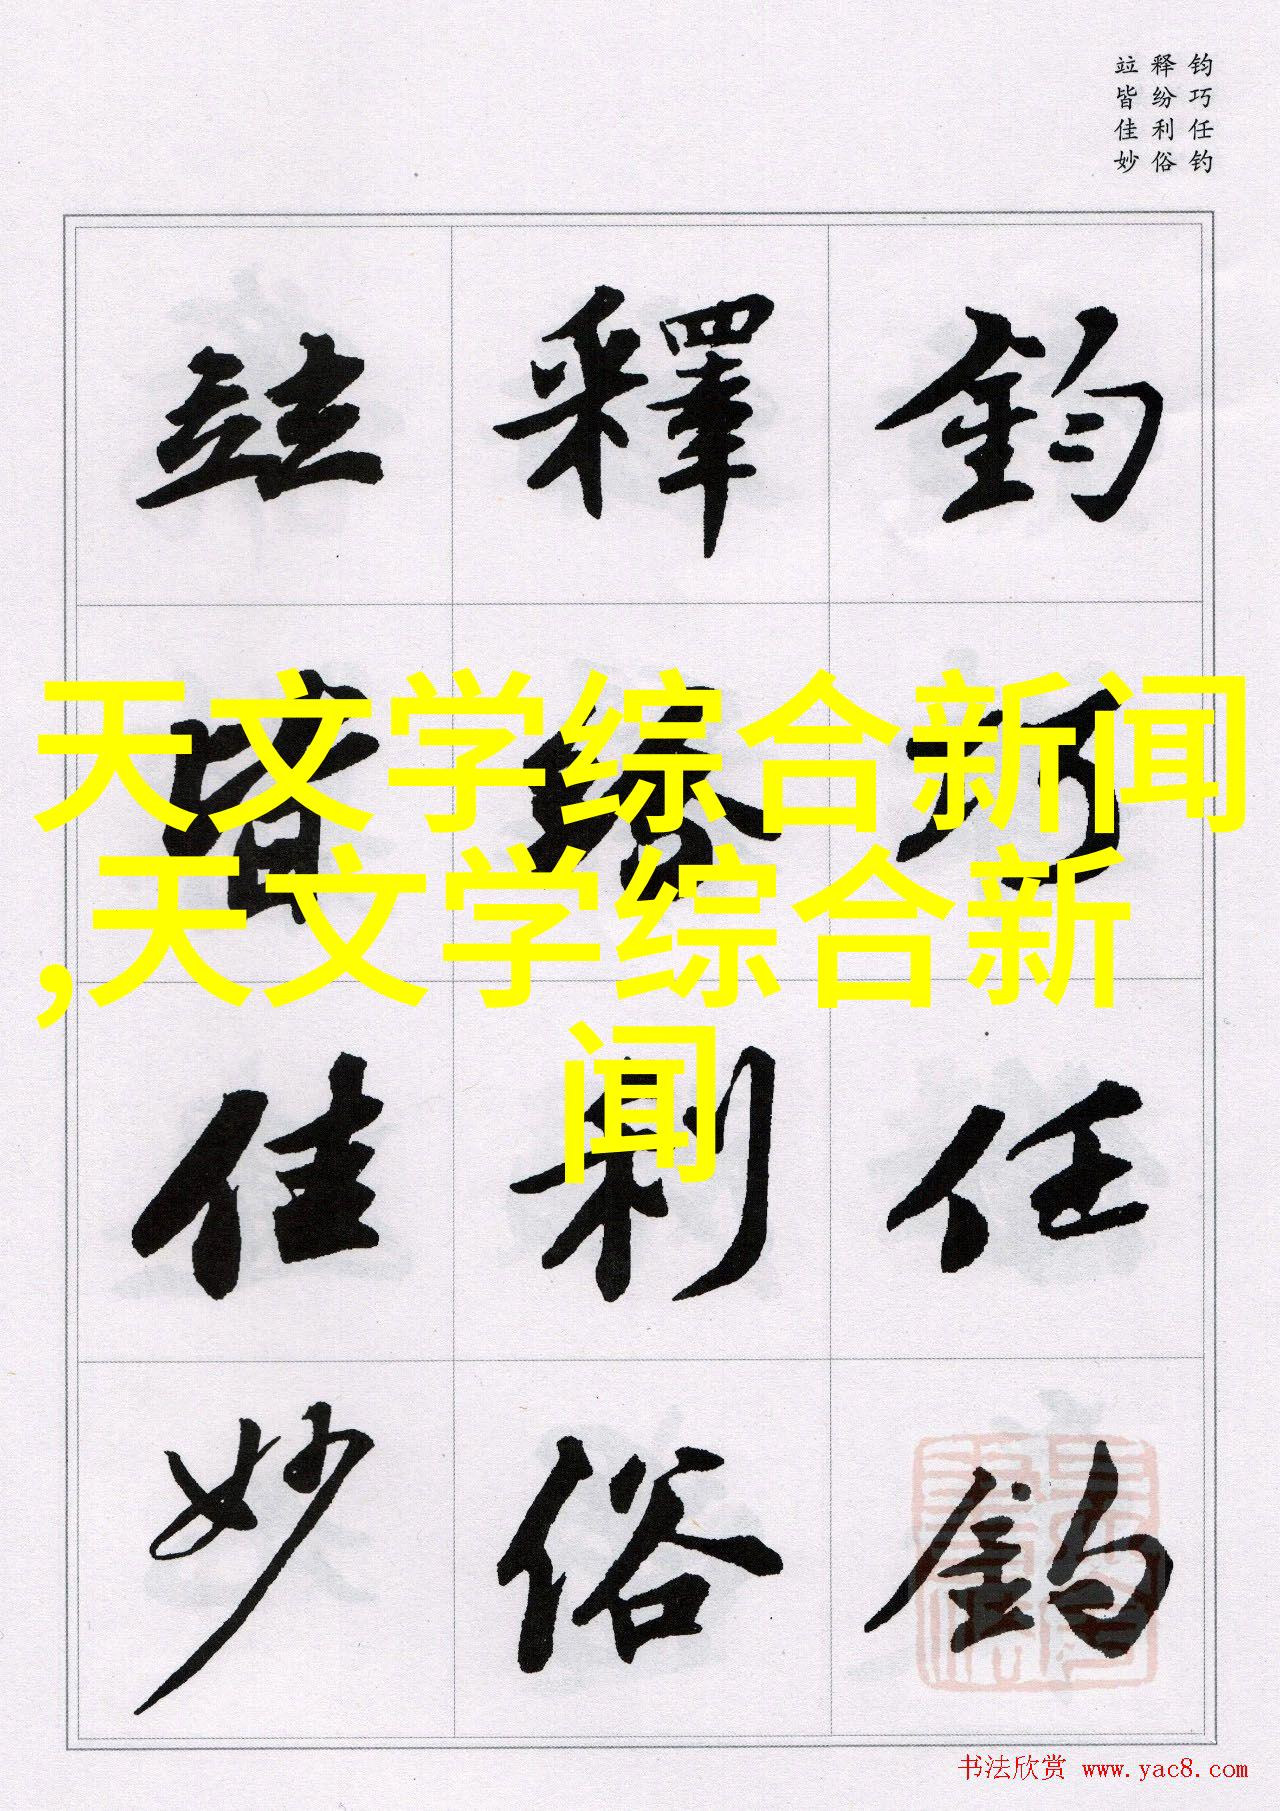 钧巧任钓
释纷利俗
竝皆佳妙
鈞巧任釣
釋紛利俗
竝皆佳妙
天文学综合新闻
,天文学综合新
闻
书法欣赏 www.yac8.com